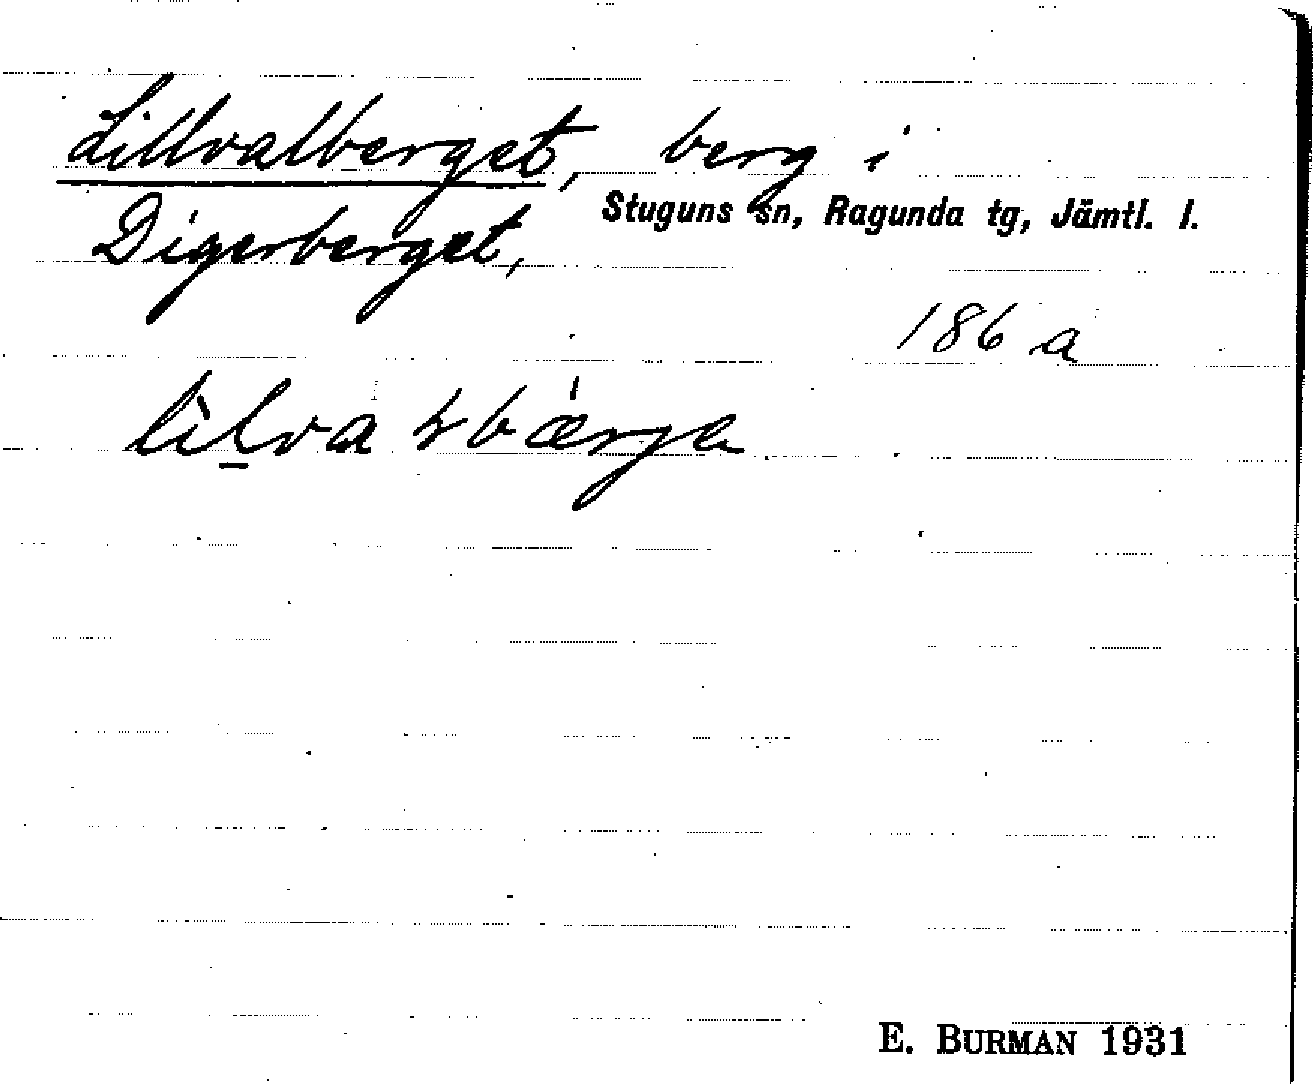 Lillvalberget, berg i
Digerberget, Stuguns sn, Ragunda tg, Jämtl. l.
186 a
E. BURMAN 1931